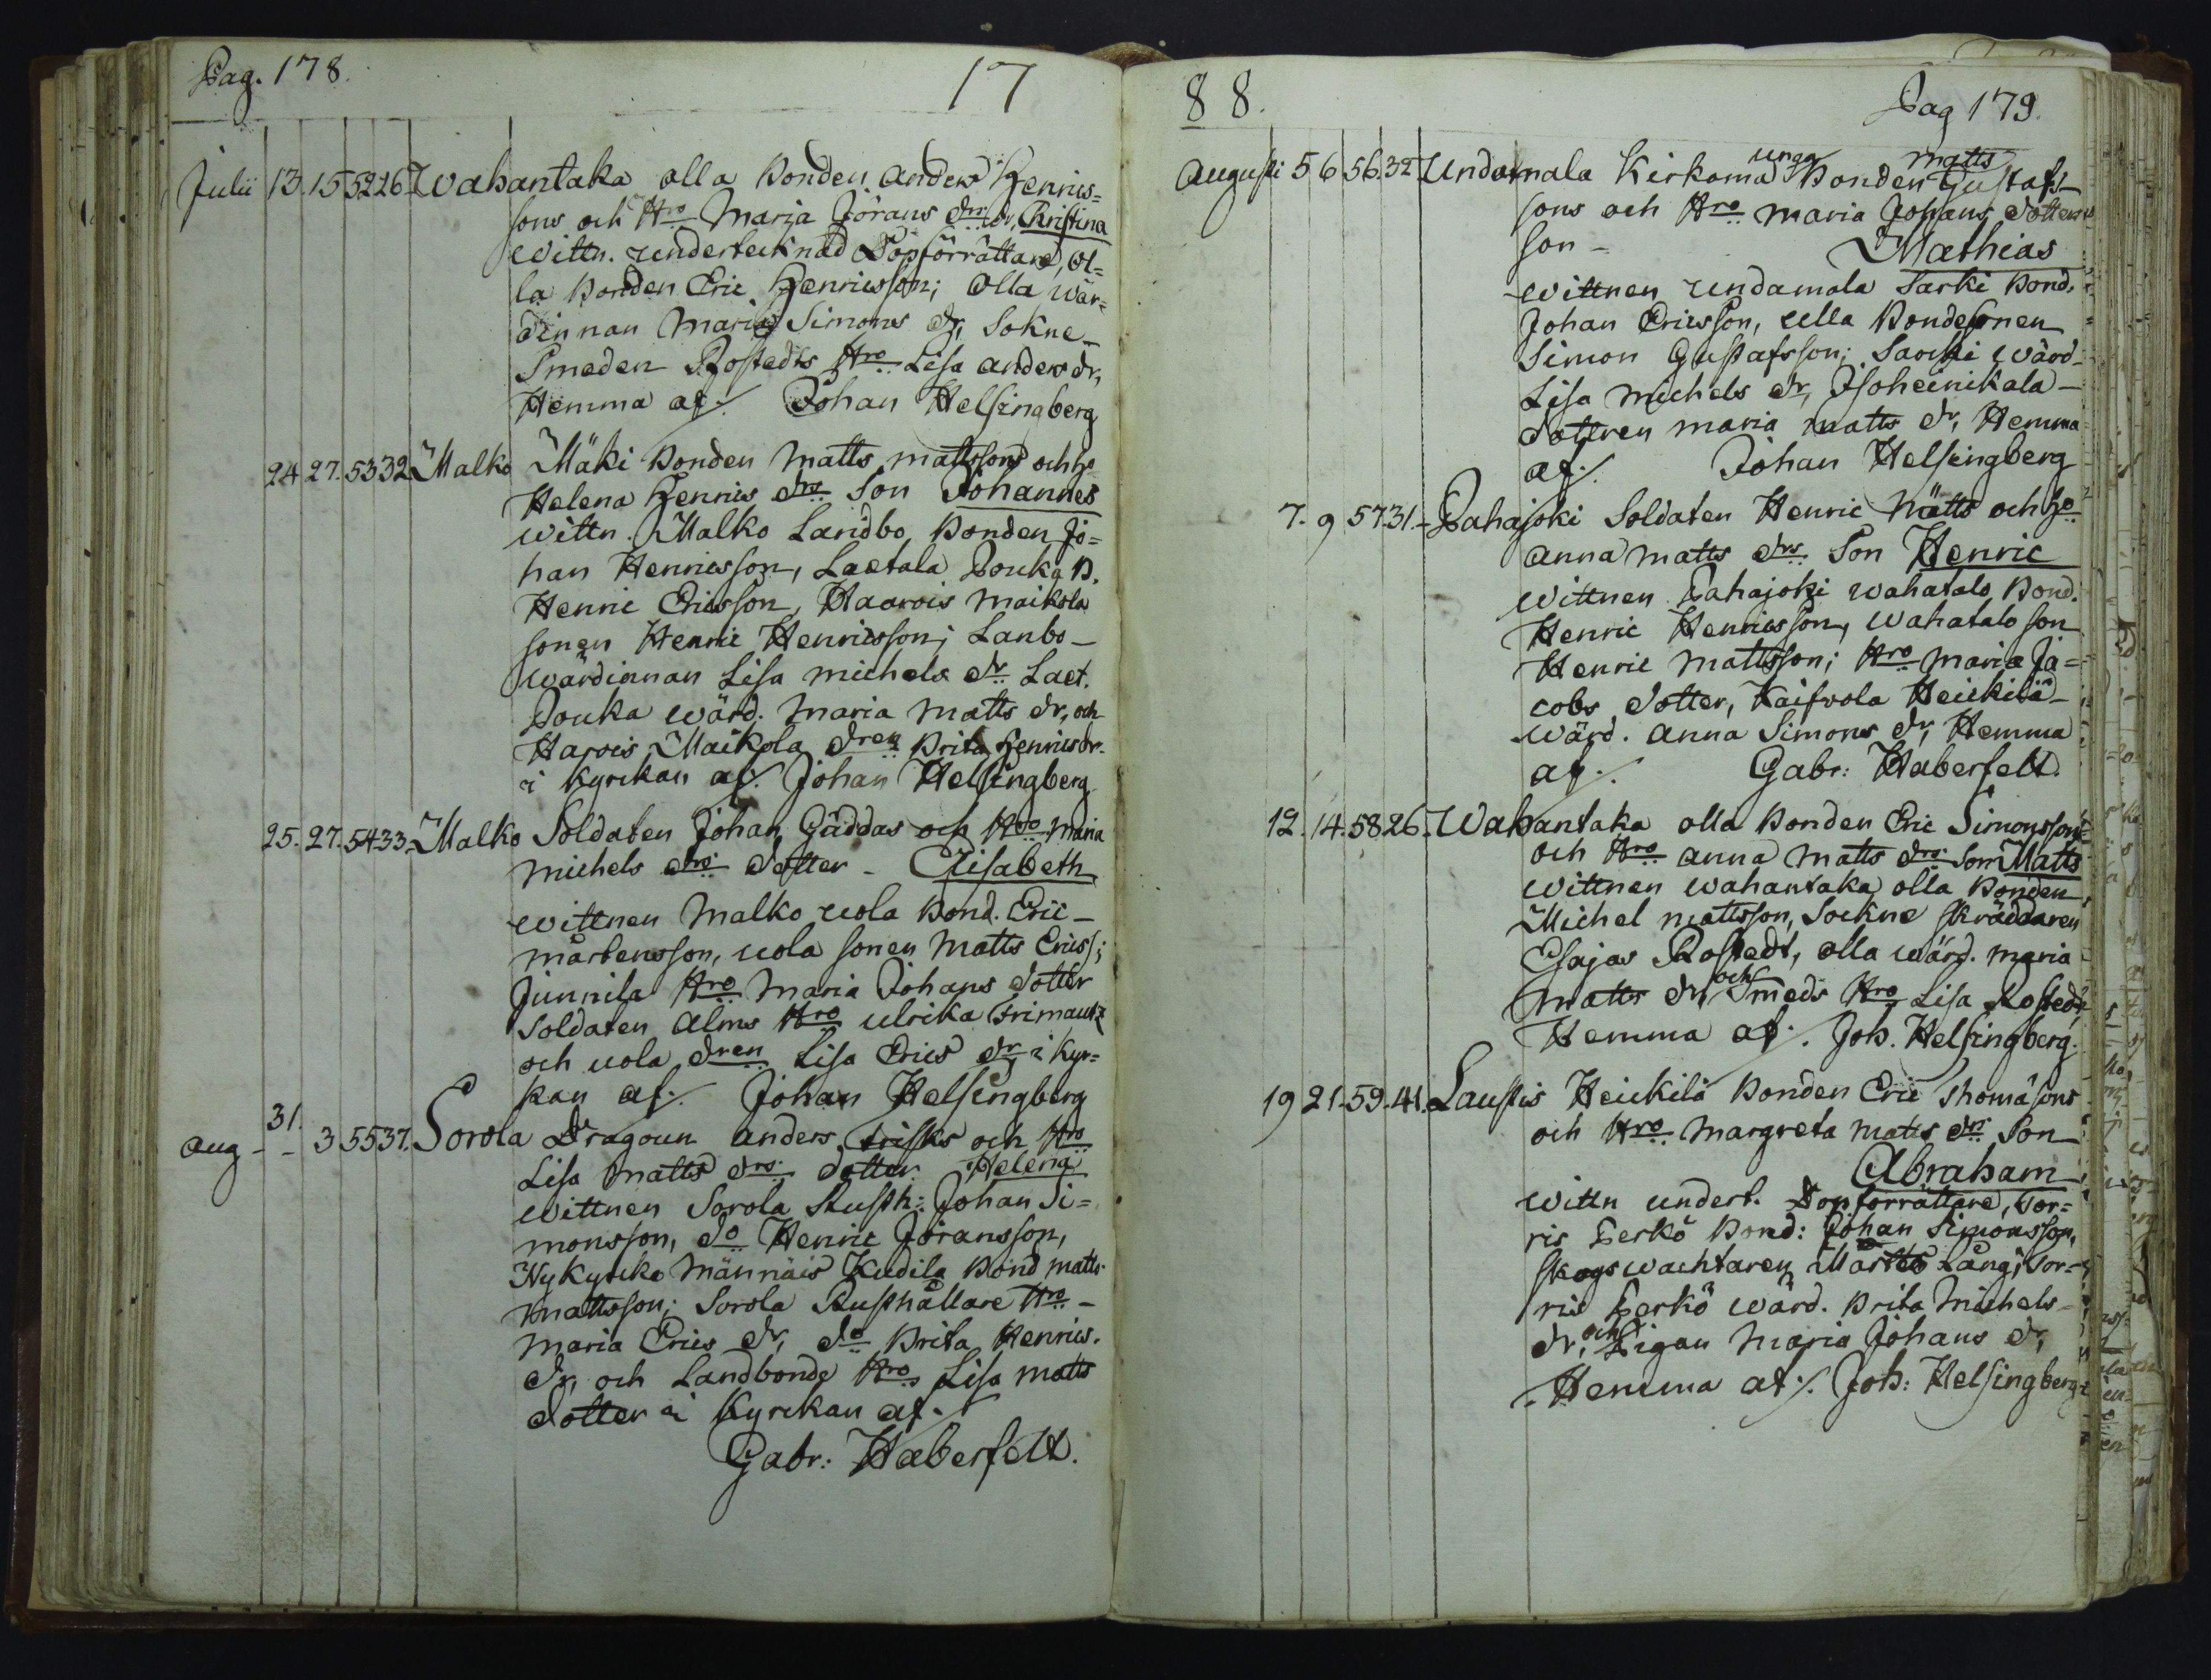 Pag. 178.
17
Julii 13. 15 52 26 Wahantaka olla Bonden Anders Henrics=
sons och Hro Maria Jörans dr. dr, Christina
Wittn. undertecknad Dopförrättare, ol=
la Bonden Eric Henricsson; Olla wär=
dinnan Maria Simons dr, Sokne
Smeden Rostedts Hro Lisa Anders dr,
Hemma af ./. Johan Helsingberg
24 27. 53 32 Malko Mäki Bonden Matts Mattssons och ho
Helena Henrics drs Son Johannes
Wittn. Malko Landbo Bonden Jo=
han Henricsson, Laetala Pouka B.
Henric Ericsson, Haarois Maikola
sonen Henric Henricsson; Lanbo-
wärdinnan Lisa Michels dr Laet.
Pouka wärd. Maria Matts dr, och
Harois Maikola dren Brita Henrics dr.
i Kyrckan af ./. Johan Helsingberg
25. 27. 54 33. Malko Soldaten Johan Gäddas och Hro Maria
Michels drs dotter - Elisabeth
Wittnen Malko uola Bond. Eric-
Mårtensson, uola sonen Matts Ericss;
Junnila Hro Maria Johans dotter
Soldaten Alms Hro Ulrika Frimants
och uola dren Lisa Erics dr i Kyr=
kan af ./. Johan Helsingberg
31.
Aug - - 3 55 37. Sorola Dragoun Anders Frisks och Hro
Lisa Matts drs dotter Helena
Wittnen Sorola Rusth: Johan Si=
monsson, do Henric Jöransson,
Nykyrcko Männäis Kudila Bond Matts
Mattsson; Sorola Rusthållare Hro -
Maria Erics dr, do Brita Henrics.
dr, och Landbonde Hro Lisa Matts
dotter i Kyrckan af ./.
Gabr: Haberfelt.
88.
Pag 179.
unga Matts
Augusti 5 6 56. 32 Undamala Kirkoma Bonden Gustafs
sons och Hro Maria Johans dotters
son - Mathias
Wittnen Undamala Sarki Bond,
Johan Ericsson, ulla Bondesonen
Simon Gustafsson; Sarcki wärd
Lisa Michels dr, Isoheinikala -
dotteren Maria Matts dr, Hemma
af ./. Johan Helsingberg
7. 9 57 31. Pahajoki Soldaten Henric Mätts och Ho
Anna Matts drs Son Henric
Wittnen Pahajoki Wahatalo Bond.
Henric Henricsson, Wahatalo son
Henric Mattsson; Hro Maria Ja=
cobs dotter, Kaifvola Heickilä-
wärd. Anna Simons dr, Hemma
af ./. Gabr: Haberfelt.
12. 14. 58 26. Wahantaka olla Bonden Eric Simonssons
och Hro Anna Matts drs Son Matts
Wittnen Wahantaka olla Bonden
Michel Mattsson, Sockne Skräddaren
Esajas Rostedt, olla wärd. Maria
Matts dr, och Smeds Hro Lisa Rostedt,
Hemma af ./. Joh. Helsingberg.
19 21. 59. 41. Laustis Heickilä Bonden Eric Thomäsons
och Hro Margreta Matts drs Son
Abraham
Wittn undert. Dopförrättare, Tor=
ris Erko Bond: Johan Simonsson,
Skogswachtaren Mårten Lång; Tor=
ris Erkö wärd. Brita Michels
dr, och Pigan Maria Johans dr,
Hemma af ./. Joh: Helsingberg